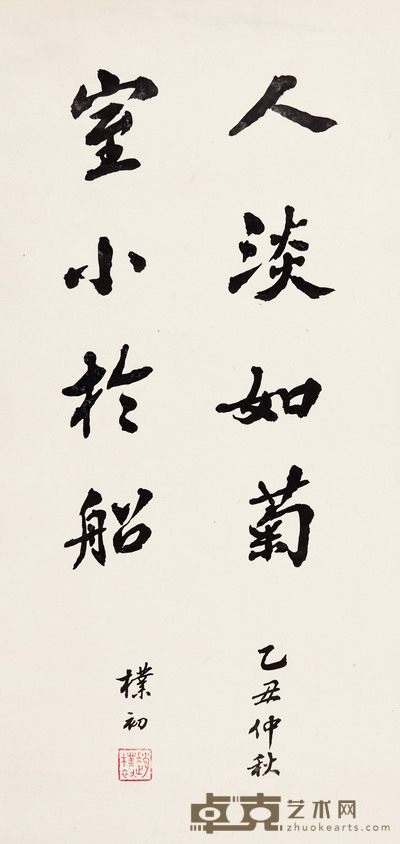 人淡如菊
乙丑仲秋
室小於船
樸初
卓克艺术网
zhuokearts.com